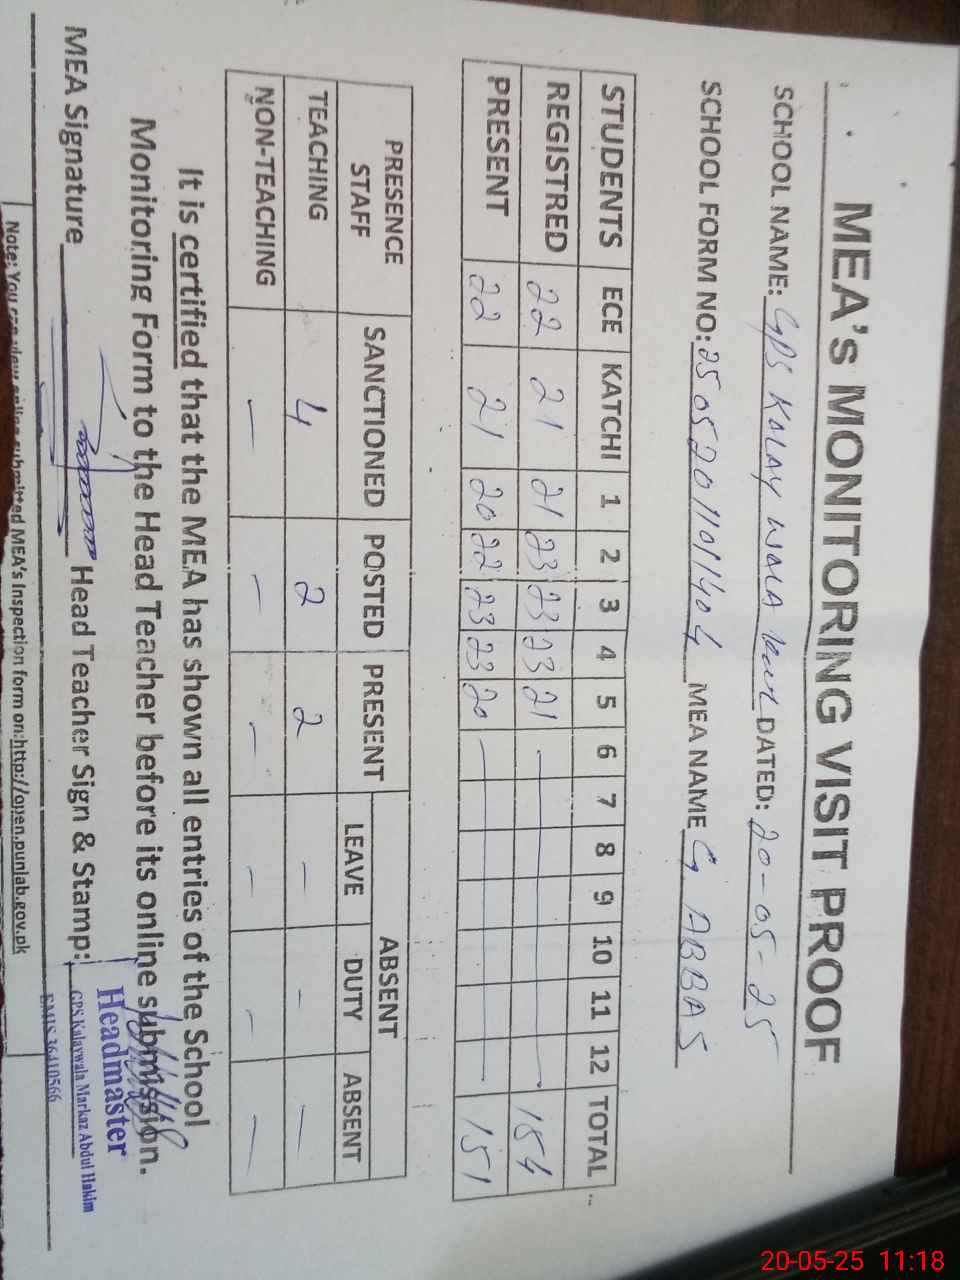 MEA's MONITORING VISIT PROOF
SCHOOL NAME: GPS KALAY WALA DATED: 20-05-25
SCHOOL FORM NO: 25052011011404 MEA NAME G ABBAS
STUDENTS ECE KATCHI 1 2 3 4 5 6 7 8 9 10 11 12 TOTAL
REGISTRED 22 21 21 23 23 23 21 — 154
PRESENT 22 21 20 22 23 23 20 — 151
PRESENCE STAFF SANCTIONED POSTED PRESENT ABSENT
LEAVE DUTY ABSENT
TEACHING 4 2 2 – – –
NON-TEACHING – – – – – –
It is certified that the MEA has shown all entries of the School
Monitoring Form to the Head Teacher before its online submission.
MEA Signature Head Teacher Sign & Stamp:
Headmaster
GPS Kalaywala Markaz Abdul Hakim
EMIS 36410566
Note: You can view online submitted MEA's Inspection form on:http://open.punlab.gov.pk
20-05-25 11:18